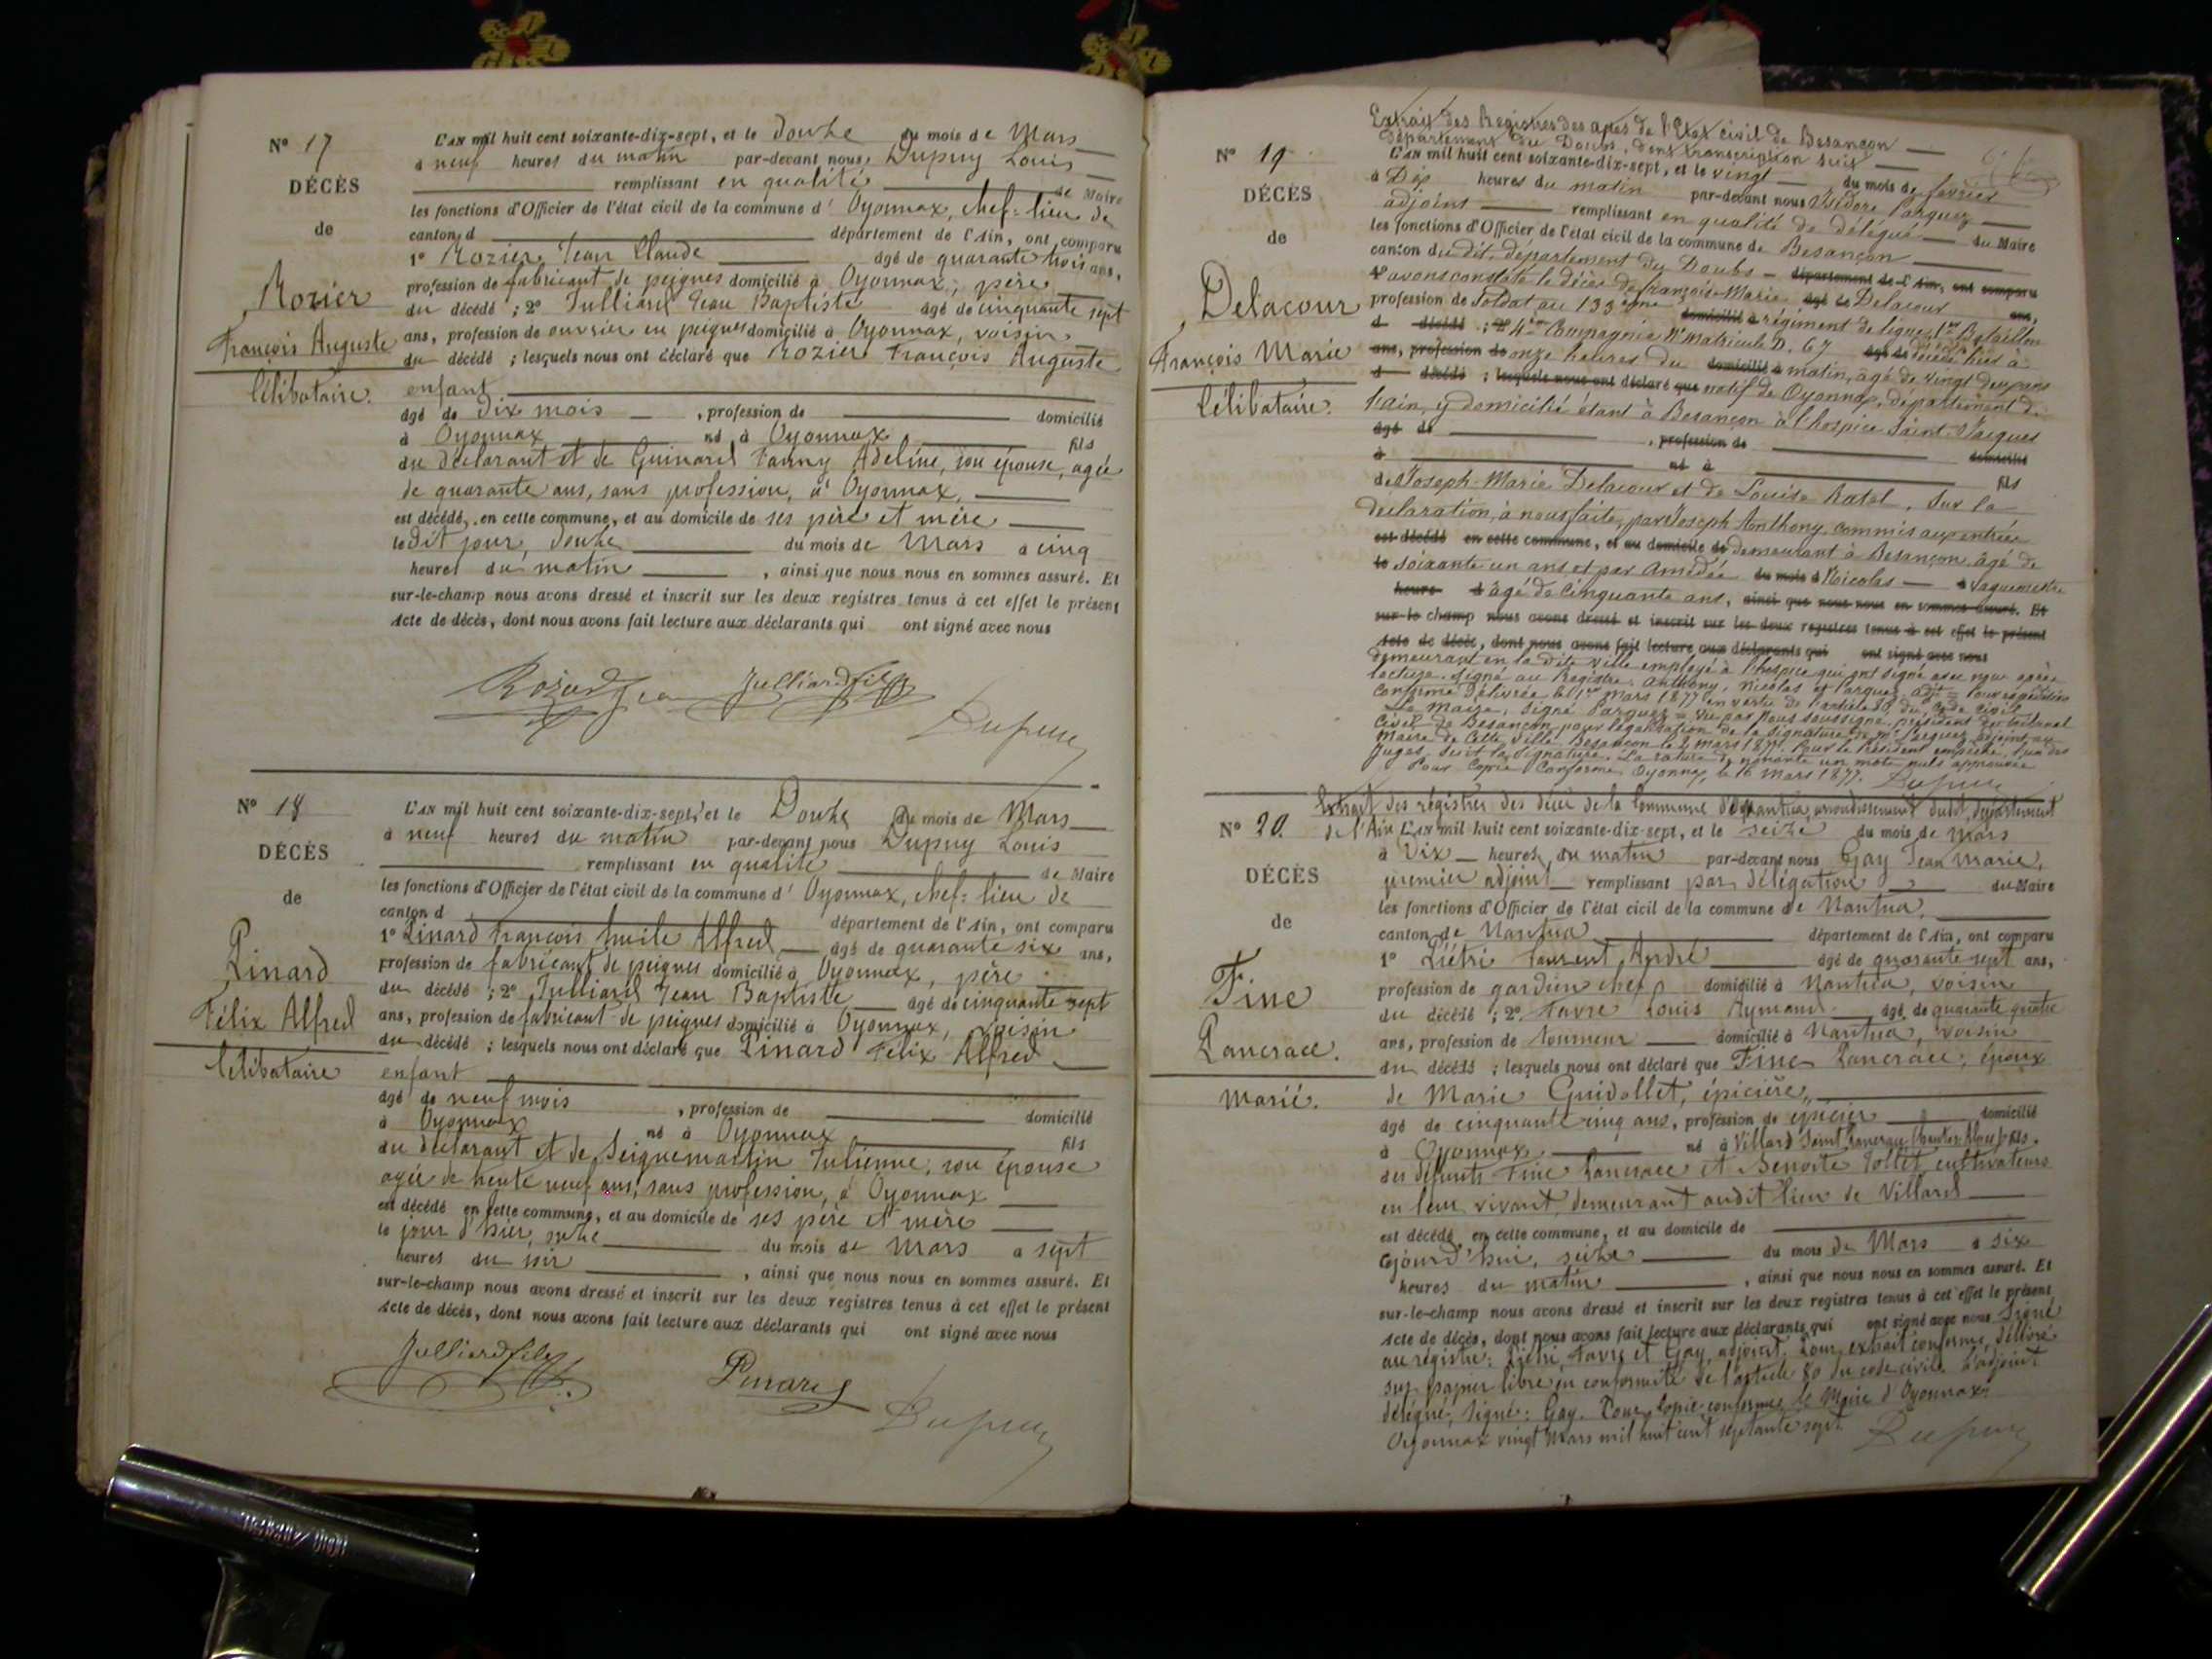 N° 17
DÉCÈS
de
Rozier
François Auguste
Célibataire.
L'AN mil huit cent soixante-dix-sept, et le douze du mois de Mars
à neuf heures du matin par-devant nous, Dupuy Louis
remplissant en qualité de Maire
les fonctions d'Officier de l'état civil de la commune d' Oyonnax, chef-lieu de
canton d département de l'Ain, ont comparu
1° Rozier Jean Claude âgé de quarante trois ans,
profession de fabricant de peignes domicilié à Oyonnax, père
du décédé ; 2° Julliard Jean Baptiste âgé de cinquante sept
ans, profession de ouvrier en peignes domicilié à Oyonnax, voisin
du décédé ; lesquels nous ont déclaré que Rozier François Auguste
enfant
âgé de dix mois , profession de domicilié
à Oyonnax né à Oyonnax fils
du déclarant et de Guinard Fanny Adeline, son épouse, agée
de quarante ans, sans profession, à Oyonnax,
est décédé, en cette commune, et au domicile de ses père et mère
le dit jour, douze du mois de Mars à cinq
heures du matin , ainsi que nous nous en sommes assuré. Et
sur-le-champ nous avons dressé et inscrit sur les deux registres tenus à cet effet le présent
Acte de décès, dont nous avons fait lecture aux déclarants qui ont signé avec nous
Julliard fils
Dupuy
N° 18
DÉCÈS
de
Pinard
Félix Alfred
Célibataire
L'AN mil huit cent soixante-dix-sept, et le Douze du mois de Mars
à neuf heures du matin par-devant nous Dupuy Louis
remplissant en qualité de Maire
les fonctions d'Officier de l'état civil de la commune d' Oyonnax, chef-lieu de
canton d département de l'Ain, ont comparu
1° Pinard François Alfred âgé de quarante six ans,
profession de fabricant de peignes domicilié à Oyonnax, père
du décédé ; 2° Julliard Jean Baptiste âgé de cinquante sept
ans, profession de fabricant de peignes domicilié à Oyonnax, voisin
du décédé ; lesquels nous ont déclaré que Pinard Félix Alfred
enfant
âgé de neuf mois , profession de domicilié
à Oyonnax né à Oyonnax fils
du déclarant et de Seignemartin Julienne, son épouse
agée de trente neuf ans, sans profession, à Oyonnax
est décédé en cette commune, et au domicile de ses père et mère
le jour d'hier, onze du mois de Mars à sept
heures du soir , ainsi que nous nous en sommes assuré. Et
sur-le-champ nous avons dressé et inscrit sur les deux registres tenus à cet effet le présent
Acte de décès, dont nous avons fait lecture aux déclarants qui ont signé avec nous
Julliard fils Pinard
Dupuy
N° 19
DÉCÈS
de
Delacour
François Marie
Célibataire.
Extrait des Registres des actes de l'Etat civil de Besançon
département du Doubs, dont transcription suit
L'AN mil huit cent soixante-dix-sept, et le vingt du mois de février
à Dix heures du matin par-devant nous Isidore Parguez
adjoint remplissant en qualité de délégué du Maire
les fonctions d'Officier de l'état civil de la commune de Besançon
canton du dit, département du Doubs département de l'Ain, ont comparu
avons constaté le décès de François-Marie âgé de Delacour ans,
profession de Soldat au 133ème domicilié à régiment de ligne, 1er Bataillon
d décédé ; 2° 4ème Compagnie N° matricule D. 67 âgé de décédé hier à
ans, profession de onze heures du domicilié à matin, âgé de vingt deux ans
d décédé ; lesquels nous ont déclaré que natif de Oyonnax, département de
l'ain, y domicilié étant à Besançon à l'hospice Saint-Jacques
âgé de , profession de domicilié
à né à fils
de Joseph-Marie Delacour et de Louise Ratel, Sur la
déclaration, à nous faite, par Joseph Anthony, commis aux entrées
est décédé en cette commune, et au domicile de demeurant à Besançon âgé de
le soixante un ans et par Amédée du mois d Nicolas à Vaguemestre
heure d âgé de Cinquante ans, ainsi que nous nous en sommes assuré. Et
sur-le-champ nous avons dressé et inscrit sur les deux registres tenus à cet effet le présent
Acte de décès, dont nous avons fait lecture aux déclarants qui ont signé avec nous
demeurant en la dite ville employé à l'hospice qui ont signé avec nous après
lecture. Signé au Registre. Anthony, Nicolas et Parguez adjt = Pour expédition
Conforme Délivrée le 1er mars 1877 en vertu de l'article 80 du Code Civil
Le Maire, Signé Parguez = Vu par Nous soussigné, président du tribunal
Civil de Besançon pour légalisation de la signature de Mr Parguez adjoint au
Maire de Cette Ville. Besançon le 2 mars 1877. Pour le Président empêché, l'un des
Juges. Suit la signature. La rature de nonante un mots nuls approuvée
Pour Copie Conforme. Oyonnax, le 16 Mars 1877. Dupuy
N° 20.
DÉCÈS
de
Fine
Pancrace.
Marié.
Extrait des régistres des décès de la Commune de Nantua, arrondissement dudit, département
de l'Ain L'AN mil huit cent soixante-dix-sept, et le seize du mois de Mars
à Dix heures du matin par-devant nous Gay Jean Marie,
premier adjoint remplissant par délégation du Maire
les fonctions d'Officier de l'état civil de la commune de Nantua,
canton de Nantua département de l'Ain, ont comparu
1° Piétri Laurent André âgé de quarante sept ans,
profession de gardien chef domicilié à Nantua, voisin
du décédé ; 2° Favre Louis Aymand âgé de quarante quatre
ans, profession de tourneur domicilié à Nantua, voisin
du décédé ; lesquels nous ont déclaré que Fine Pancrace, époux
de Marie Guidollet, épicière,
âgé de cinquante cinq ans, profession de épicier domicilié
à Oyonnax né à Villard Saint Pancrace (hautes Alpes) fils.
des défunts Fine Pancrace et Benoite Tollet, cultivateurs
en leur vivant, demeurant audit lieu de Villard
est décédé en cette commune, et au domicile de
cejourd'hui, seize du mois de Mars à six
heures du matin , ainsi que nous nous en sommes assuré. Et
sur-le-champ nous avons dressé et inscrit sur les deux registres tenus à cet effet le présent
Acte de décès, dont nous avons fait lecture aux déclarants qui ont signé avec nous Signé
au régistre: Piétri, Favre et Gay, adjoint. Pour extrait conforme, délivré
sur papier libre en conformité de l'article 80 du code civil. L'adjoint
délégué, signé: Gay. Pour copie conforme, le Maire d'Oyonnax.
Oyonnax vingt Mars mil huit cent septante sept. Dupuy